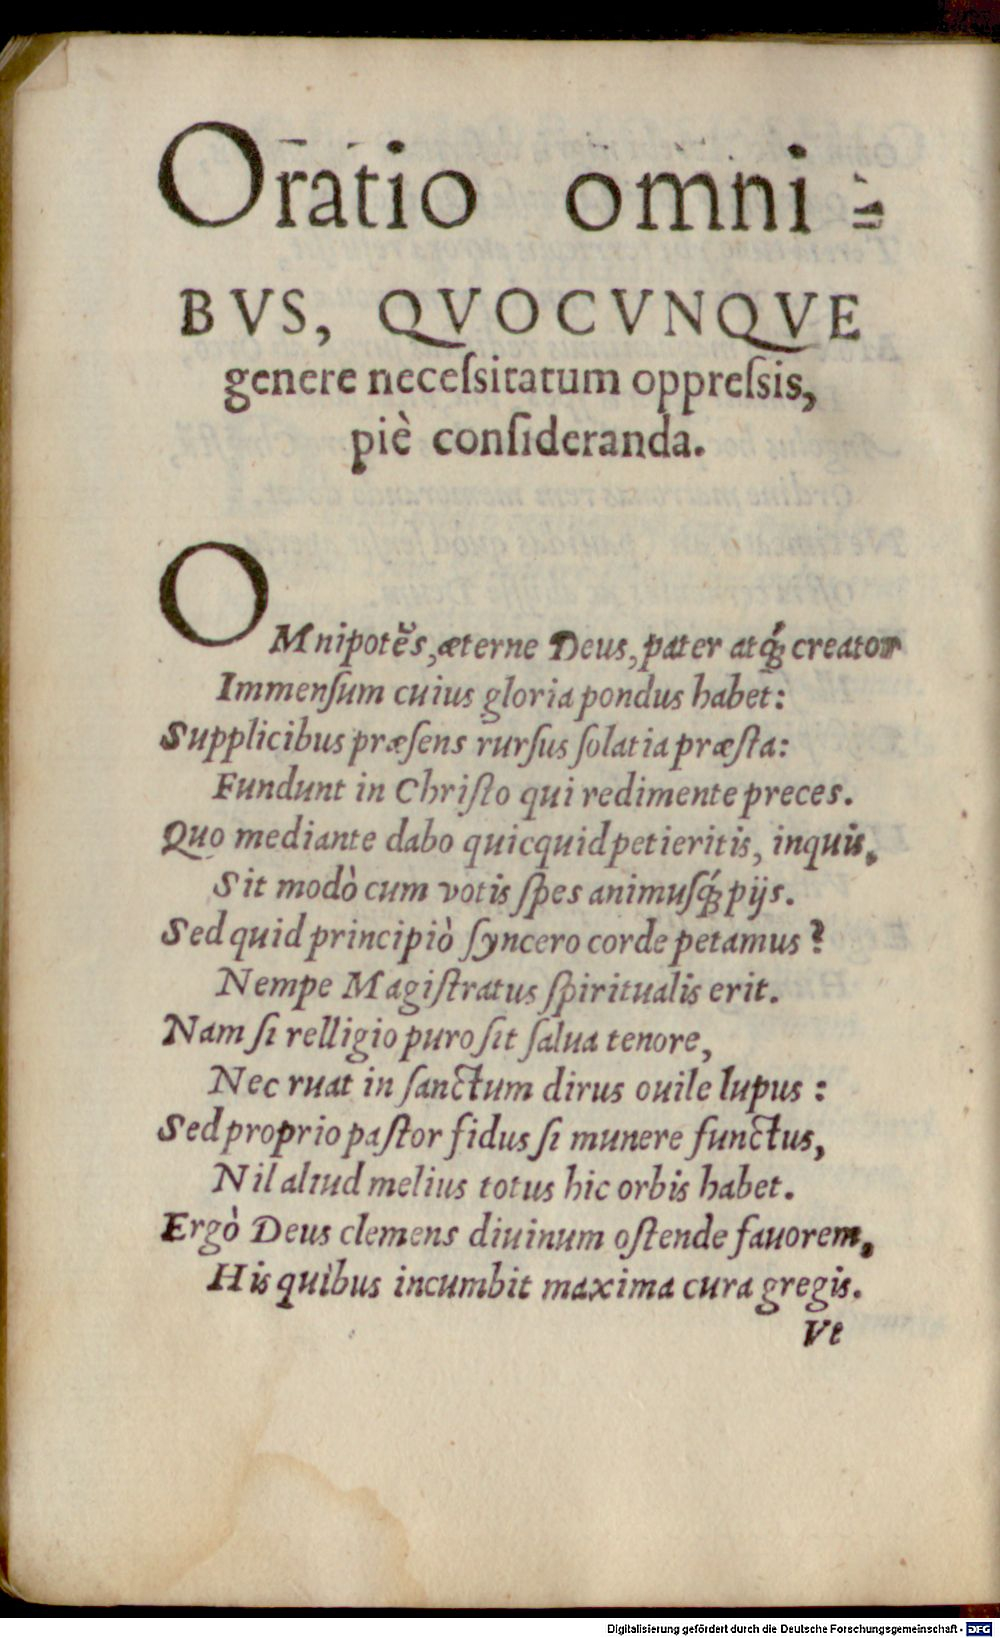 Oratio omni=
BVS, QVOCVNQVE
genere neceſsitatum oppreſsis,
piè conſideranda.
OMnipotẽs, æterne Deus, pater atq́ꝫ creator
Immenſum cuius gloria pondus habet:
Supplicibus præſens rurſus ſolatia præſta:
Fundunt in Chriſto qui redimente preces.
Quo mediante dabo quicquid petieritis, inquis,
Sit modò cum votis ſpes animuſq́ꝫ pijs.
Sed quid principiò ſyncero corde petamus?
Nempe Magiſtratus ſpiritualis erit.
Nam ſi relligio puro ſit ſalua tenore,
Nec ruat in ſanctum dirus ouile lupus:
Sed proprio paſtor fidus ſi munere functus,
Nil aliud melius totus hic orbis habet.
Ergò Deus clemens diuinum oſtende fauorem,
His quibus incumbit maxima cura gregis.
Vt
Digitalisierung gefördert durch die Deutsche Forschungsgemeinschaft - DFG